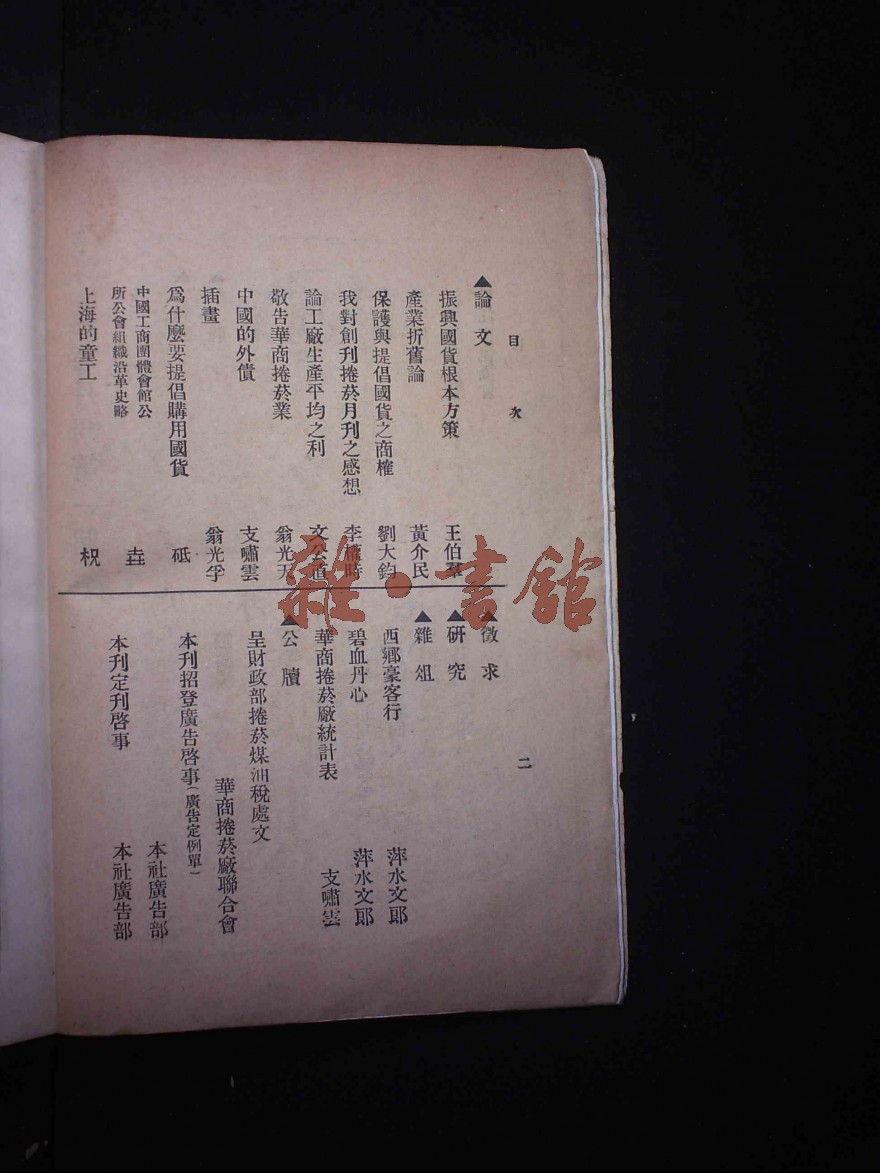 目次
二
▲論文
振興國貨根本方策 王伯羣
產業折舊論 黃介民
保護與提倡國貨之商榷 劉大鈞
我對創刊捲菸月刊之感想 李權時
論工廠生產平均之利 文公直
敬告華商捲菸業 翁光天
中國的外債 支嘯雲
插畫 翁光孚
爲什麼要提倡購用國貨 砥
中國工商團體會館公
所公會組織沿革史略 垚
上海的童工 柷
▲徵求
▲研究
▲雜俎
西鄉豪客行 萍水文郎
碧血丹心 萍水文郎
華商捲菸廠統計表 支嘯雲
▲公牘
呈財政部捲菸煤油稅處文
華商捲菸廠聯合會
本刊招登廣告啓事（廣告定例單）
本社廣告部
本刊定刊啓事 本社廣告部
雜·書館